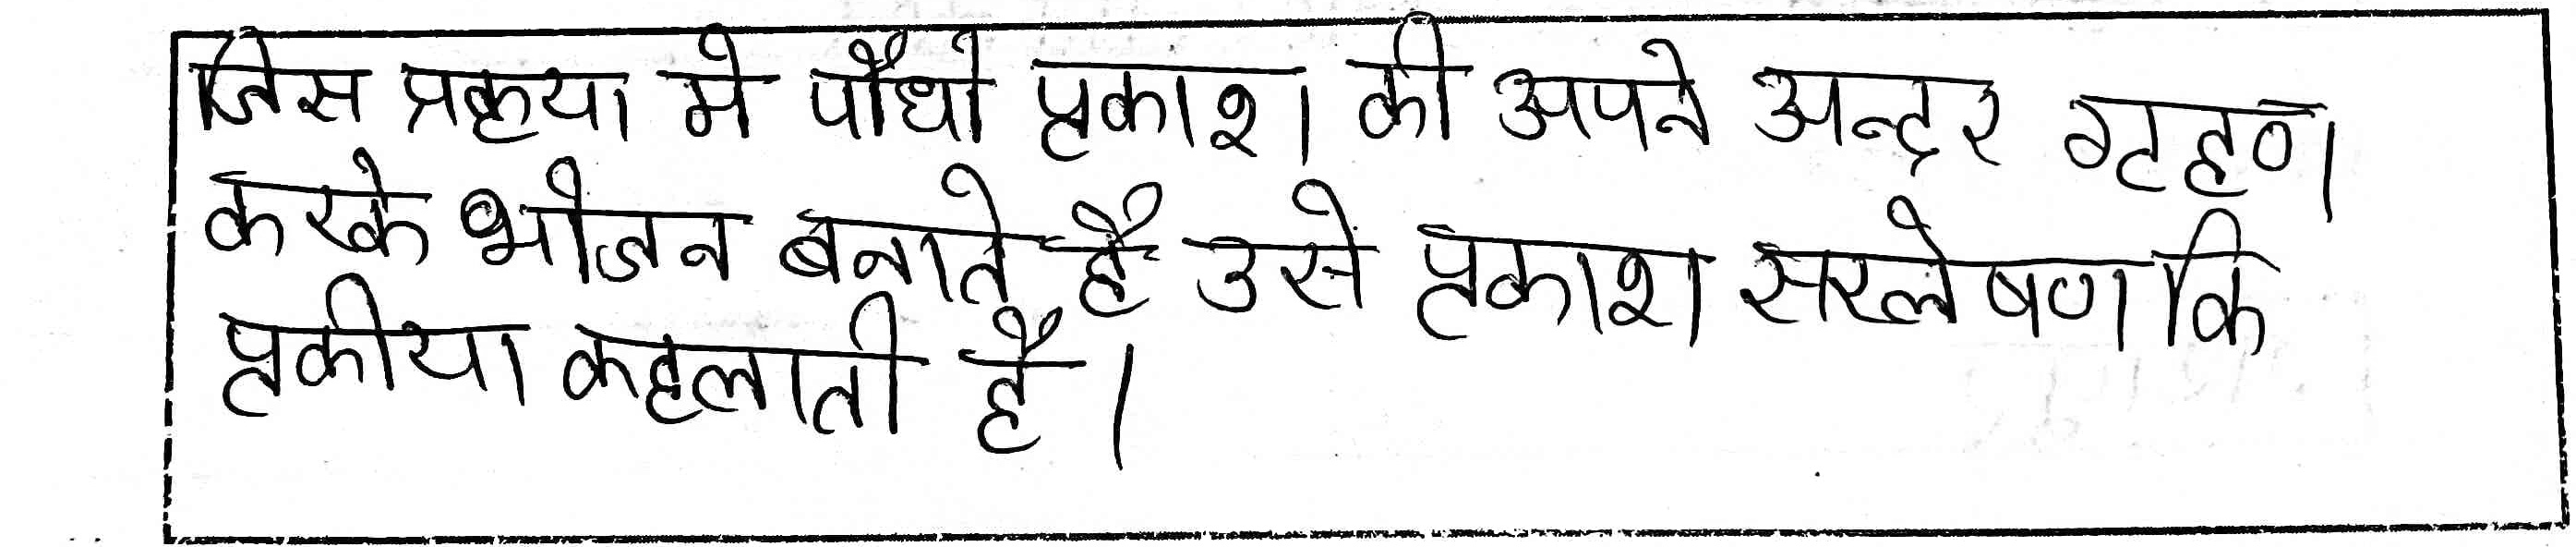 जिस प्रकृया मे पौधो प्रकाश की अपने अन्दर गृहण
करके भोजन बनाते है उसे प्रकाश सरलेषण कि
प्रकीया कहलाती है।